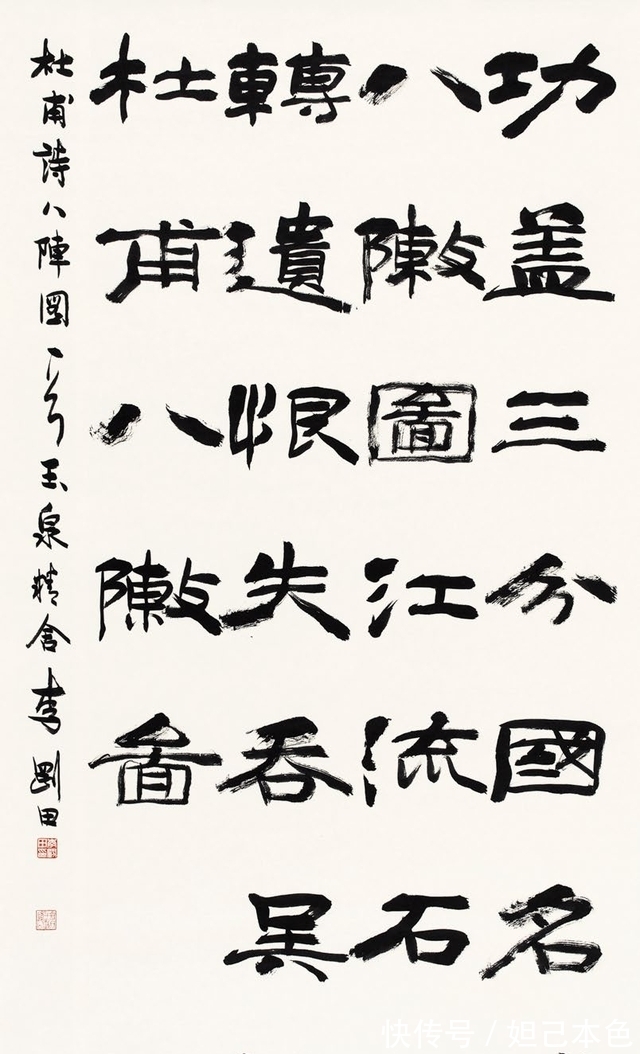 功盖三分國名
八敶圖江流石
轉遺恨失吞吴
杜甫八敶啚
杜甫詩八陣圖玉泉精舍李剛田
快传号/妲己本色